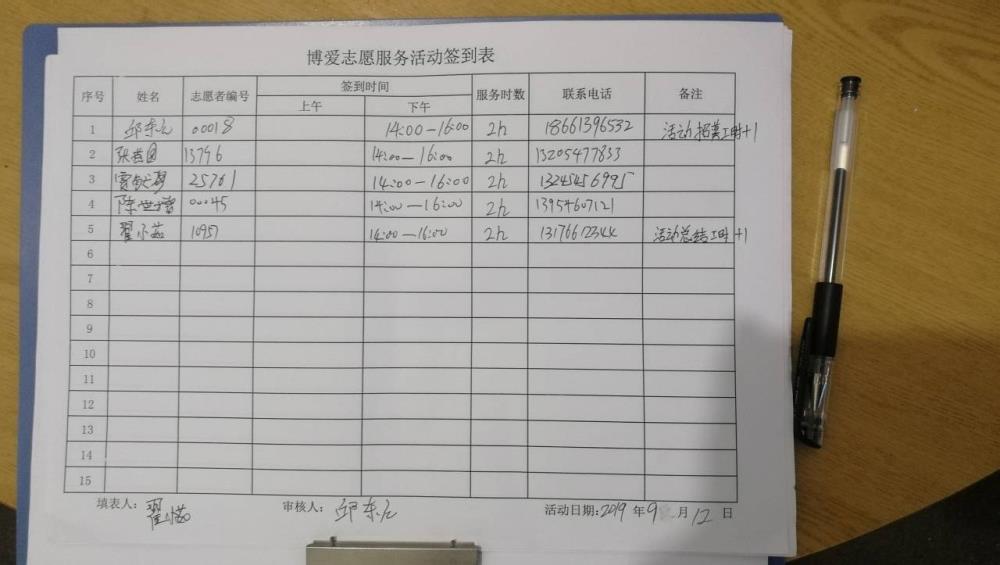 博爱志愿服务活动签到表
序号 姓名 志愿者编号 签到时间 服务时数 联系电话 备注
上午 下午
1 邱东元 00018 14:00—16:00 2h 18661396532 活动招募工时+1
2 张 13796 14:00—16:00 2h 13205477833
3 25761 14:00—16:00 2h 13245456995
4 陈世 00045 14:00—16:00 2h 13954607121
5 翟小茹 10957 14:00—16:00 2h 13176612344 活动总结工时+1
6
7
8
9
10
11
12
13
14
15
填表人：翟小茹 审核人：邱东元 活动日期：2019 年 9 月 12 日